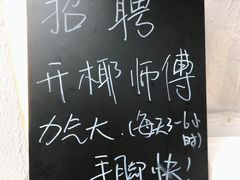 招聘
开椰师傅
力气大.(每天3-6小时)
手脚快!